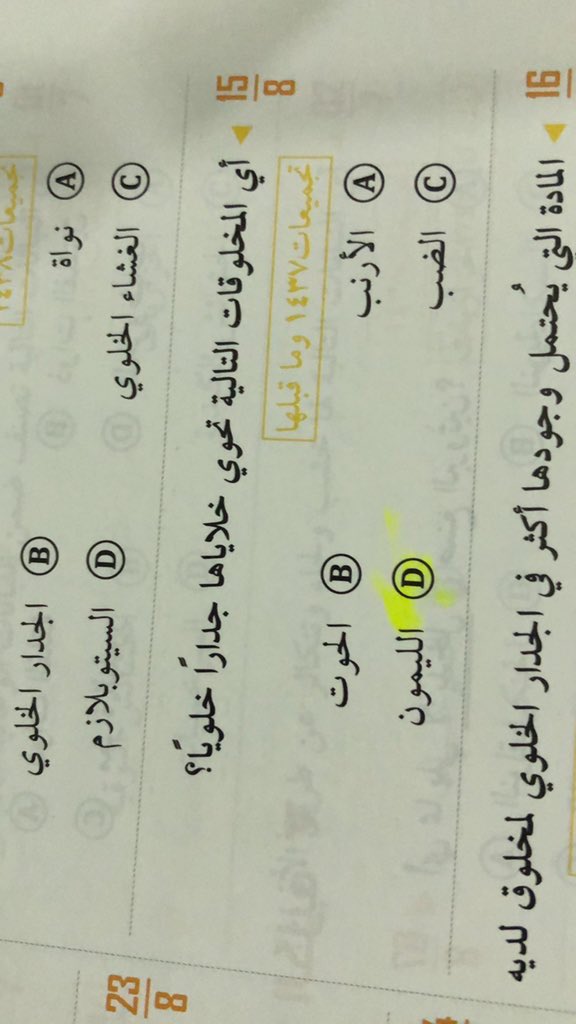 تجميعات ١٤٣٨
A نواة
B الجدار الخلوي
C الغشاء الخلوي
D السيتوبلازم
15/8 ◄ أي المخلوقات التالية تحوي خلاياها جدارًا خلويًا؟
تجميعات ١٤٣٧ وما قبلها
A الأرنب
B الحوت
C الضب
D الليمون
16 ◄ المادة التي يُحتمل وجودها أكثر في الجدار الخلوي لمخلوق لديه
23/8